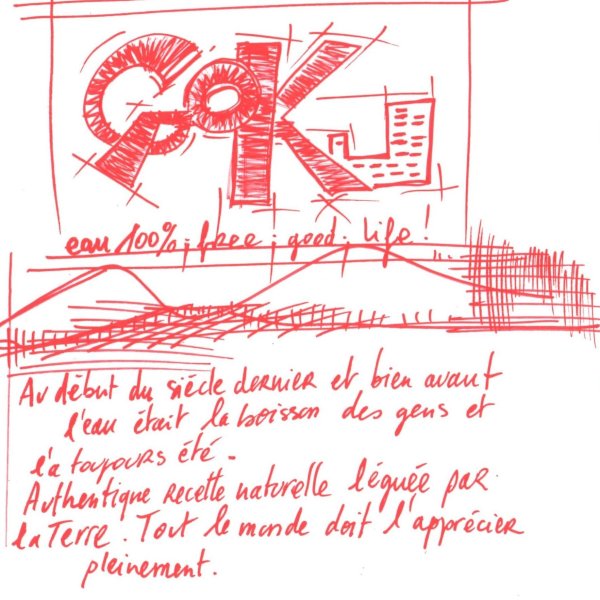 GOKU
eau 100%; free; good. life!
Au début du siècle dernier et bien avant
l'eau était la boisson des gens et
l'a toujours été.
Authentique recette naturelle léguée par
la Terre. Tout le monde doit l'apprécier
pleinement.